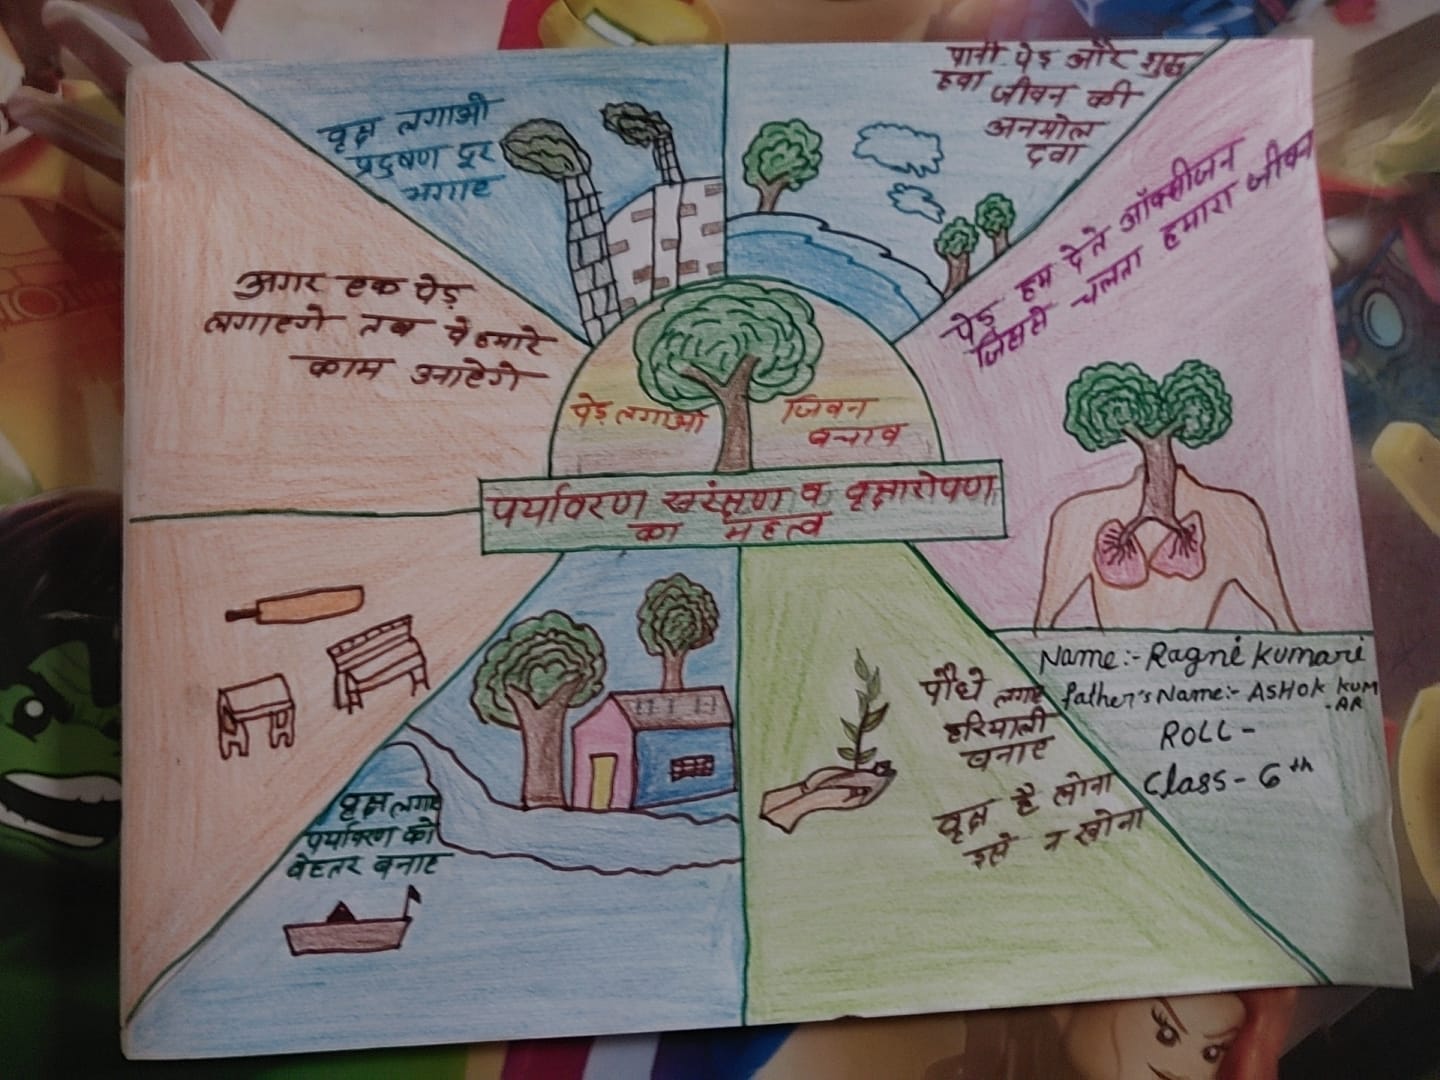 वृक्ष लगाओ
प्रदुषण दूर
भगाए
पानी पेड़ और शुद्ध
हवा जीवन की
अनमोल
दवा
पेड़ हम देते ऑक्सीजन
जिससे चलता हमारा जीवन
अगर एक पेड़
लगाएगे तब ये हमारे
काम आएगे
पेड़ लगाओ
जिवन
बचाव
पर्यावरण संरक्षण व वृक्षारोपण
का महत्व
वृक्ष लगाए
पर्यावरण को
बेहतर बनाए
पौधे लगाए
हरियाली
बनाए
वृक्ष है सोना
इसे न खोना
Name:- Ragni kumari
father's Name:- ASHOK KUM
-AR
ROLL -
Class - 6th